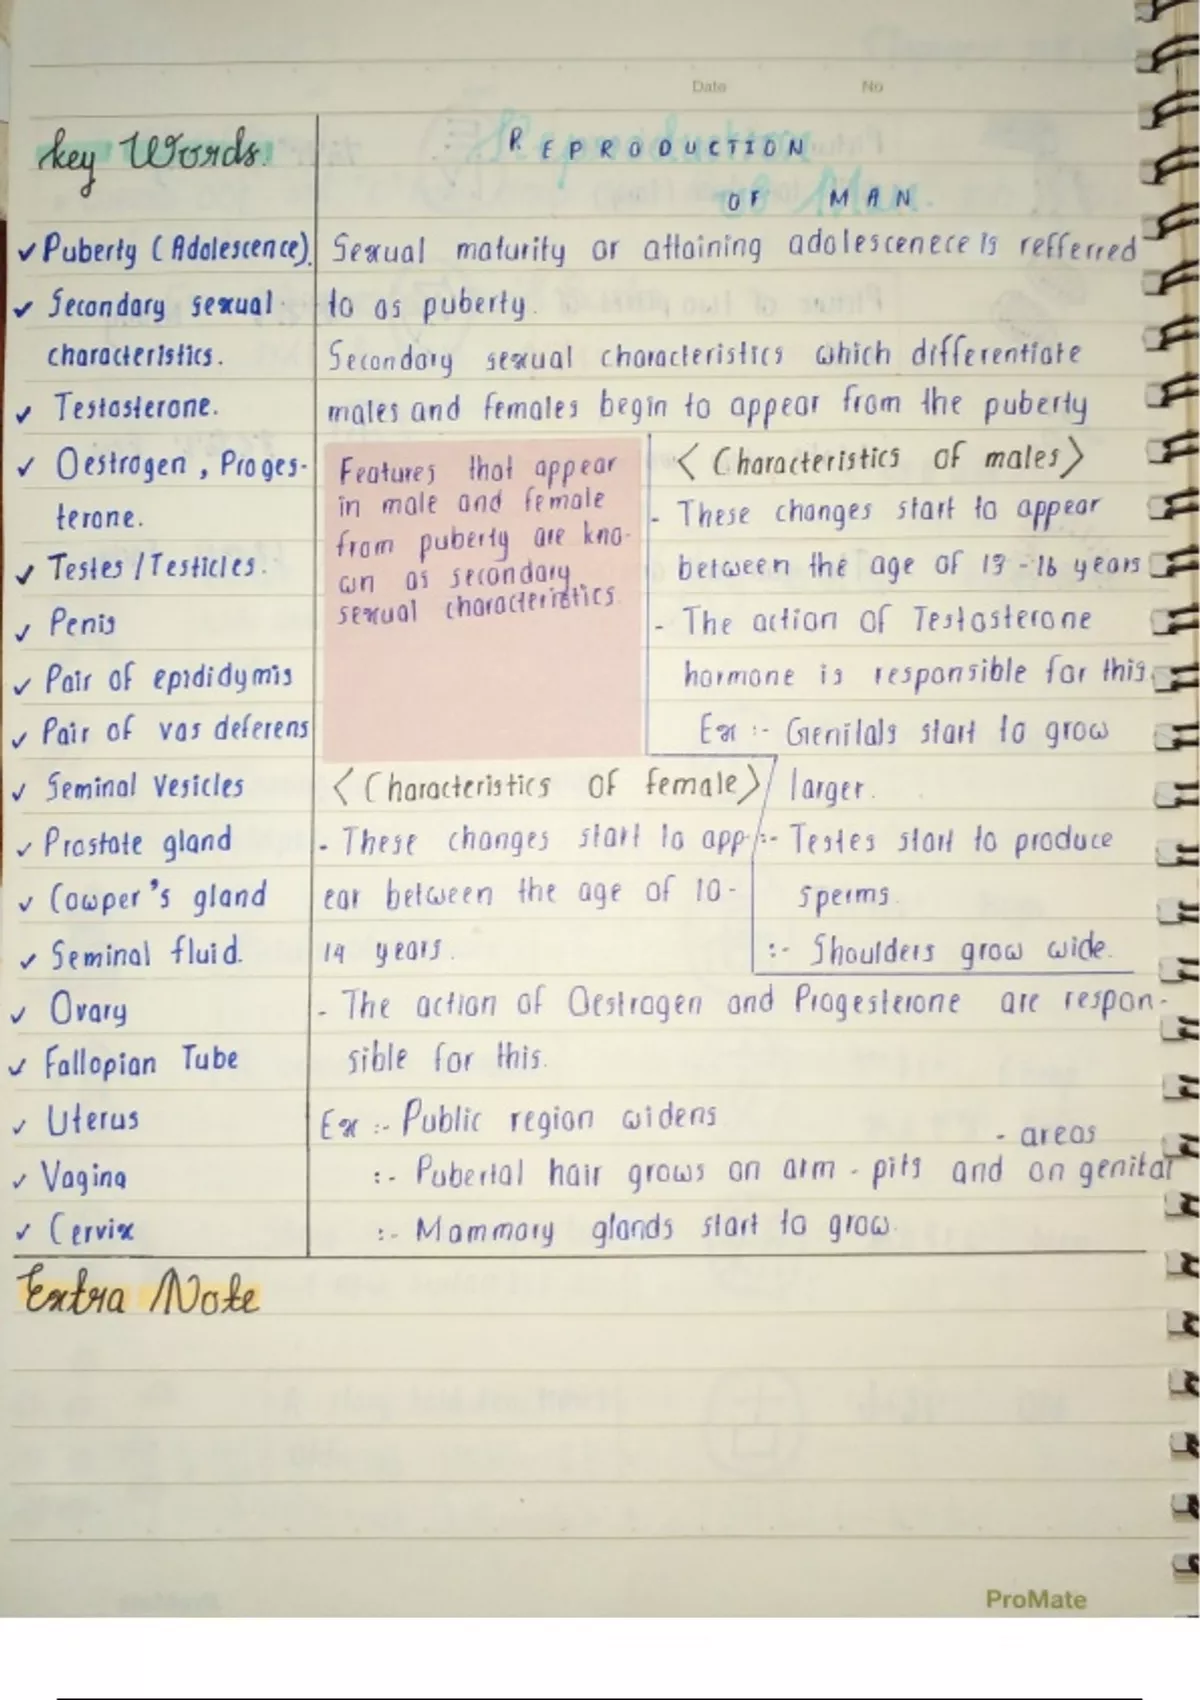 Date No
Key Words.
✓ Puberty (Adolescence).
✓ Secondary sexual
characteristics.
✓ Testosterone.
✓ Oestrogen, Proges-
terone.
✓ Testes / Testicles.
✓ Penis
✓ Pair of epididymis
✓ Pair of vas deferens
✓ Seminal Vesicles
✓ Prostate gland
✓ Cowper's gland
✓ Seminal fluid.
✓ Ovary
✓ Fallopian Tube
✓ Uterus
✓ Vagina
✓ Cervix
REPRODUCTION
OF MAN
Sexual maturity or attaining adolescenece is refferred
to as puberty.
Secondary sexual characteristics which differentiate
males and females begin to appear from the puberty
Features that appear
in male and female
from puberty are kno-
wn as secondary
sexual characteristics.
< Characteristics of males >
- These changes start to appear
between the age of 13 - 16 years
- The action of Testosterone
hormone is responsible for this.
Ex :- Genitals start to grow
larger.
:- Testes start to produce
sperms.
:- Shoulders grow wide.
< Characteristics of female >
- These changes start to app-
ear between the age of 10-
14 years.
- The action of Oestrogen and Progesterone are respon-
sible for this.
Ex :- Public region widens
:- Pubertal hair grows on arm - pits and on genital
- areas
:- Mammary glands start to grow.
Extra Note
ProMate